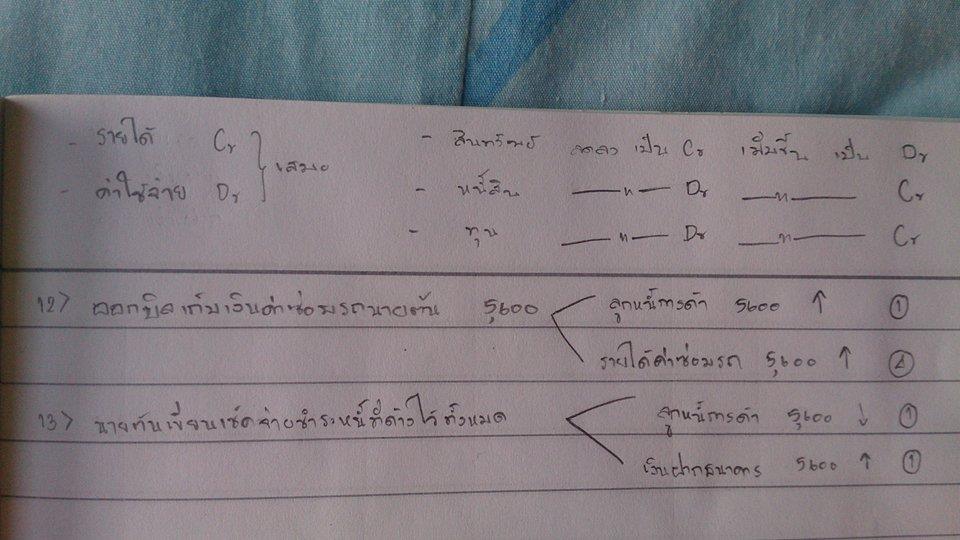 - รายได้ Cr } เสมอ
- ค่าใช้จ่าย Dr
- สินทรัพย์ ลดลง เป็น Cr เพิ่มขึ้น เป็น Dr
- หนี้สิน —— " —— Dr —— " —— Cr
- ทุน —— " —— Dr —— " —— Cr
12> ออกบิลเก็บเงินค่าซ่อมรถนายตัน 5,600
ลูกหนี้การค้า 5600 ↑ ①
รายได้ค่าซ่อมรถ 5,600 ↑ ④
13> นายตันเขียนเช็คจ่ายชำระหนี้ที่ค้างไว้ทั้งหมด
ลูกหนี้การค้า 5,600 ↓ ①
เงินฝากธนาคาร 5600 ↑ ①